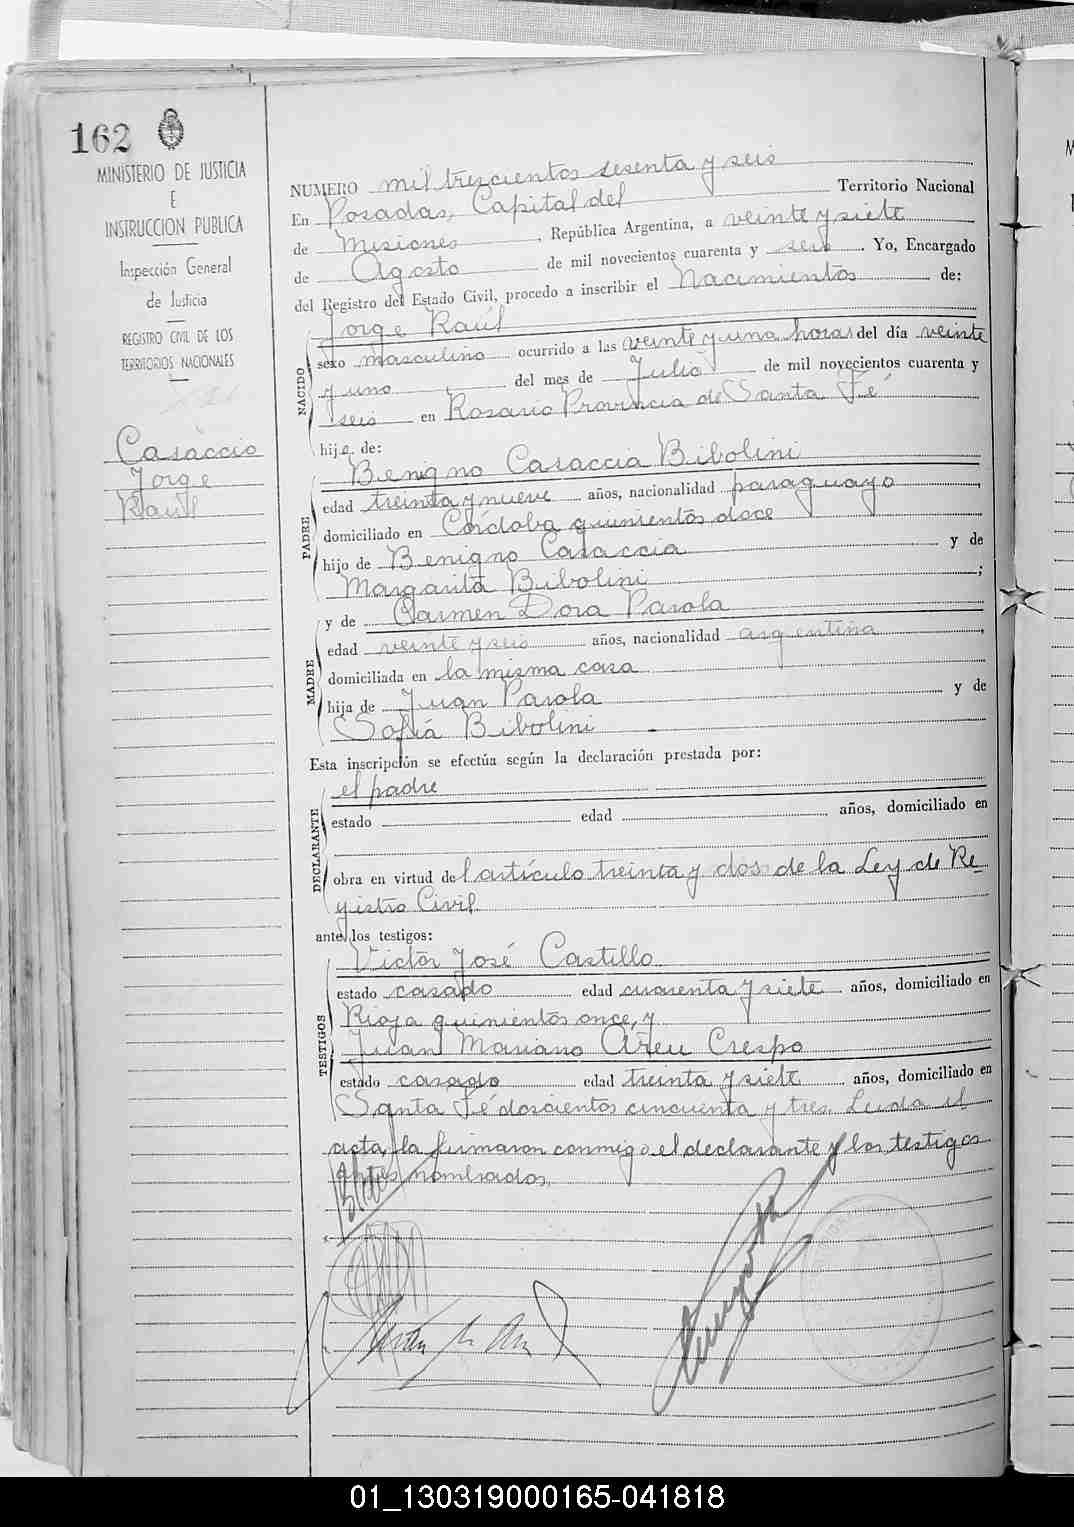 162
MINISTERIO DE JUSTICIA
E
INSTRUCCION PUBLICA
Inspección General
de Justicia
REGISTRO CIVIL DE LOS
TERRITORIOS NACIONALES
Casaccio
Jorge
Raúl
NUMERO mil trescientos sesenta y seis
En Posadas, Capital del Territorio Nacional
de Misiones, República Argentina, a veinte y siete
de Agosto de mil novecientos cuarenta y seis. Yo, Encargado
del Registro del Estado Civil, procedo a inscribir el Nacimientos de:
NACIDO
Jorge Raúl
sexo masculino ocurrido a las veinte y una horas del día veinte
y uno del mes de Julio de mil novecientos cuarenta y
seis en Rosario Provincia de Santa Fé
hijo de:
PADRE
Benigno Casaccia Bibolini
edad treinta y nueve años, nacionalidad paraguayo,
domiciliado en Córdoba quinientos doce
hijo de Benigno Casaccia y de
Margarita Bibolini;
MADRE
y de Carmen Dora Parola
edad veinte y seis años, nacionalidad argentina,
domiciliada en la misma casa
hija de Juan Parola y de
Sofía Bibolini
Esta inscripción se efectúa según la declaración prestada por:
DECLARANTE
el padre
estado edad años, domiciliado en
obra en virtud del artículo treinta y dos de la Ley de Re
gistro Civil
ante los testigos:
TESTIGOS
Victor José Castillo
estado casado edad cuarenta y siete años, domiciliado en
Rioja quinientos once, y
Juan Mariano Areu Crespo
estado casado edad treinta y siete años, domiciliado en
Santa Fé doscientos cincuenta y tres. Leida el
acta, la firmaron conmigo el declarante y los testigos
antes nombrados.
01_130319000165-041818